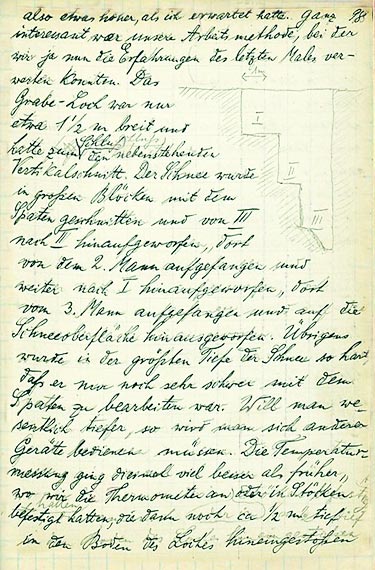 also etwas höher, als ich erwartet hatte. Ganz 98
interessant war unsere Arbeitsmethode, bei der
wir ja nun die Erfahrungen des letzten Males ver-
werten konnten. Das
1m
Grabe-Loch war nur
etwa 1 1/2 m breit und
hatte zum Schluß den nebenstehenden
Vertikalschnitt. Der Schnee wurde
in großen Blöcken mit dem
Spaten geschnitten und von III
nach II hinaufgeworfen, dort
von dem 2. Mann aufgefangen und
weiter nach I hinaufgeworfen, dort
vom 3. Mann aufgefangen und auf die
Schneeoberfläche hinausgeworfen. Übrigens
wurde in der größten Tiefe der Schnee so hart,
daß er nur noch sehr schwer mit dem
Spaten zu bearbeiten war. Will man we-
sentlich tiefer, so wird man sich anderer
Geräte bedienen müssen. Die Temperatur-
messung ging diesmal viel besser als früher,
wo wir die Thermometer an Stöcken
befestigt hatten, die dann noch ca 1/2 m tief
in den Boden des Loches hineingestoßen
I
II
III